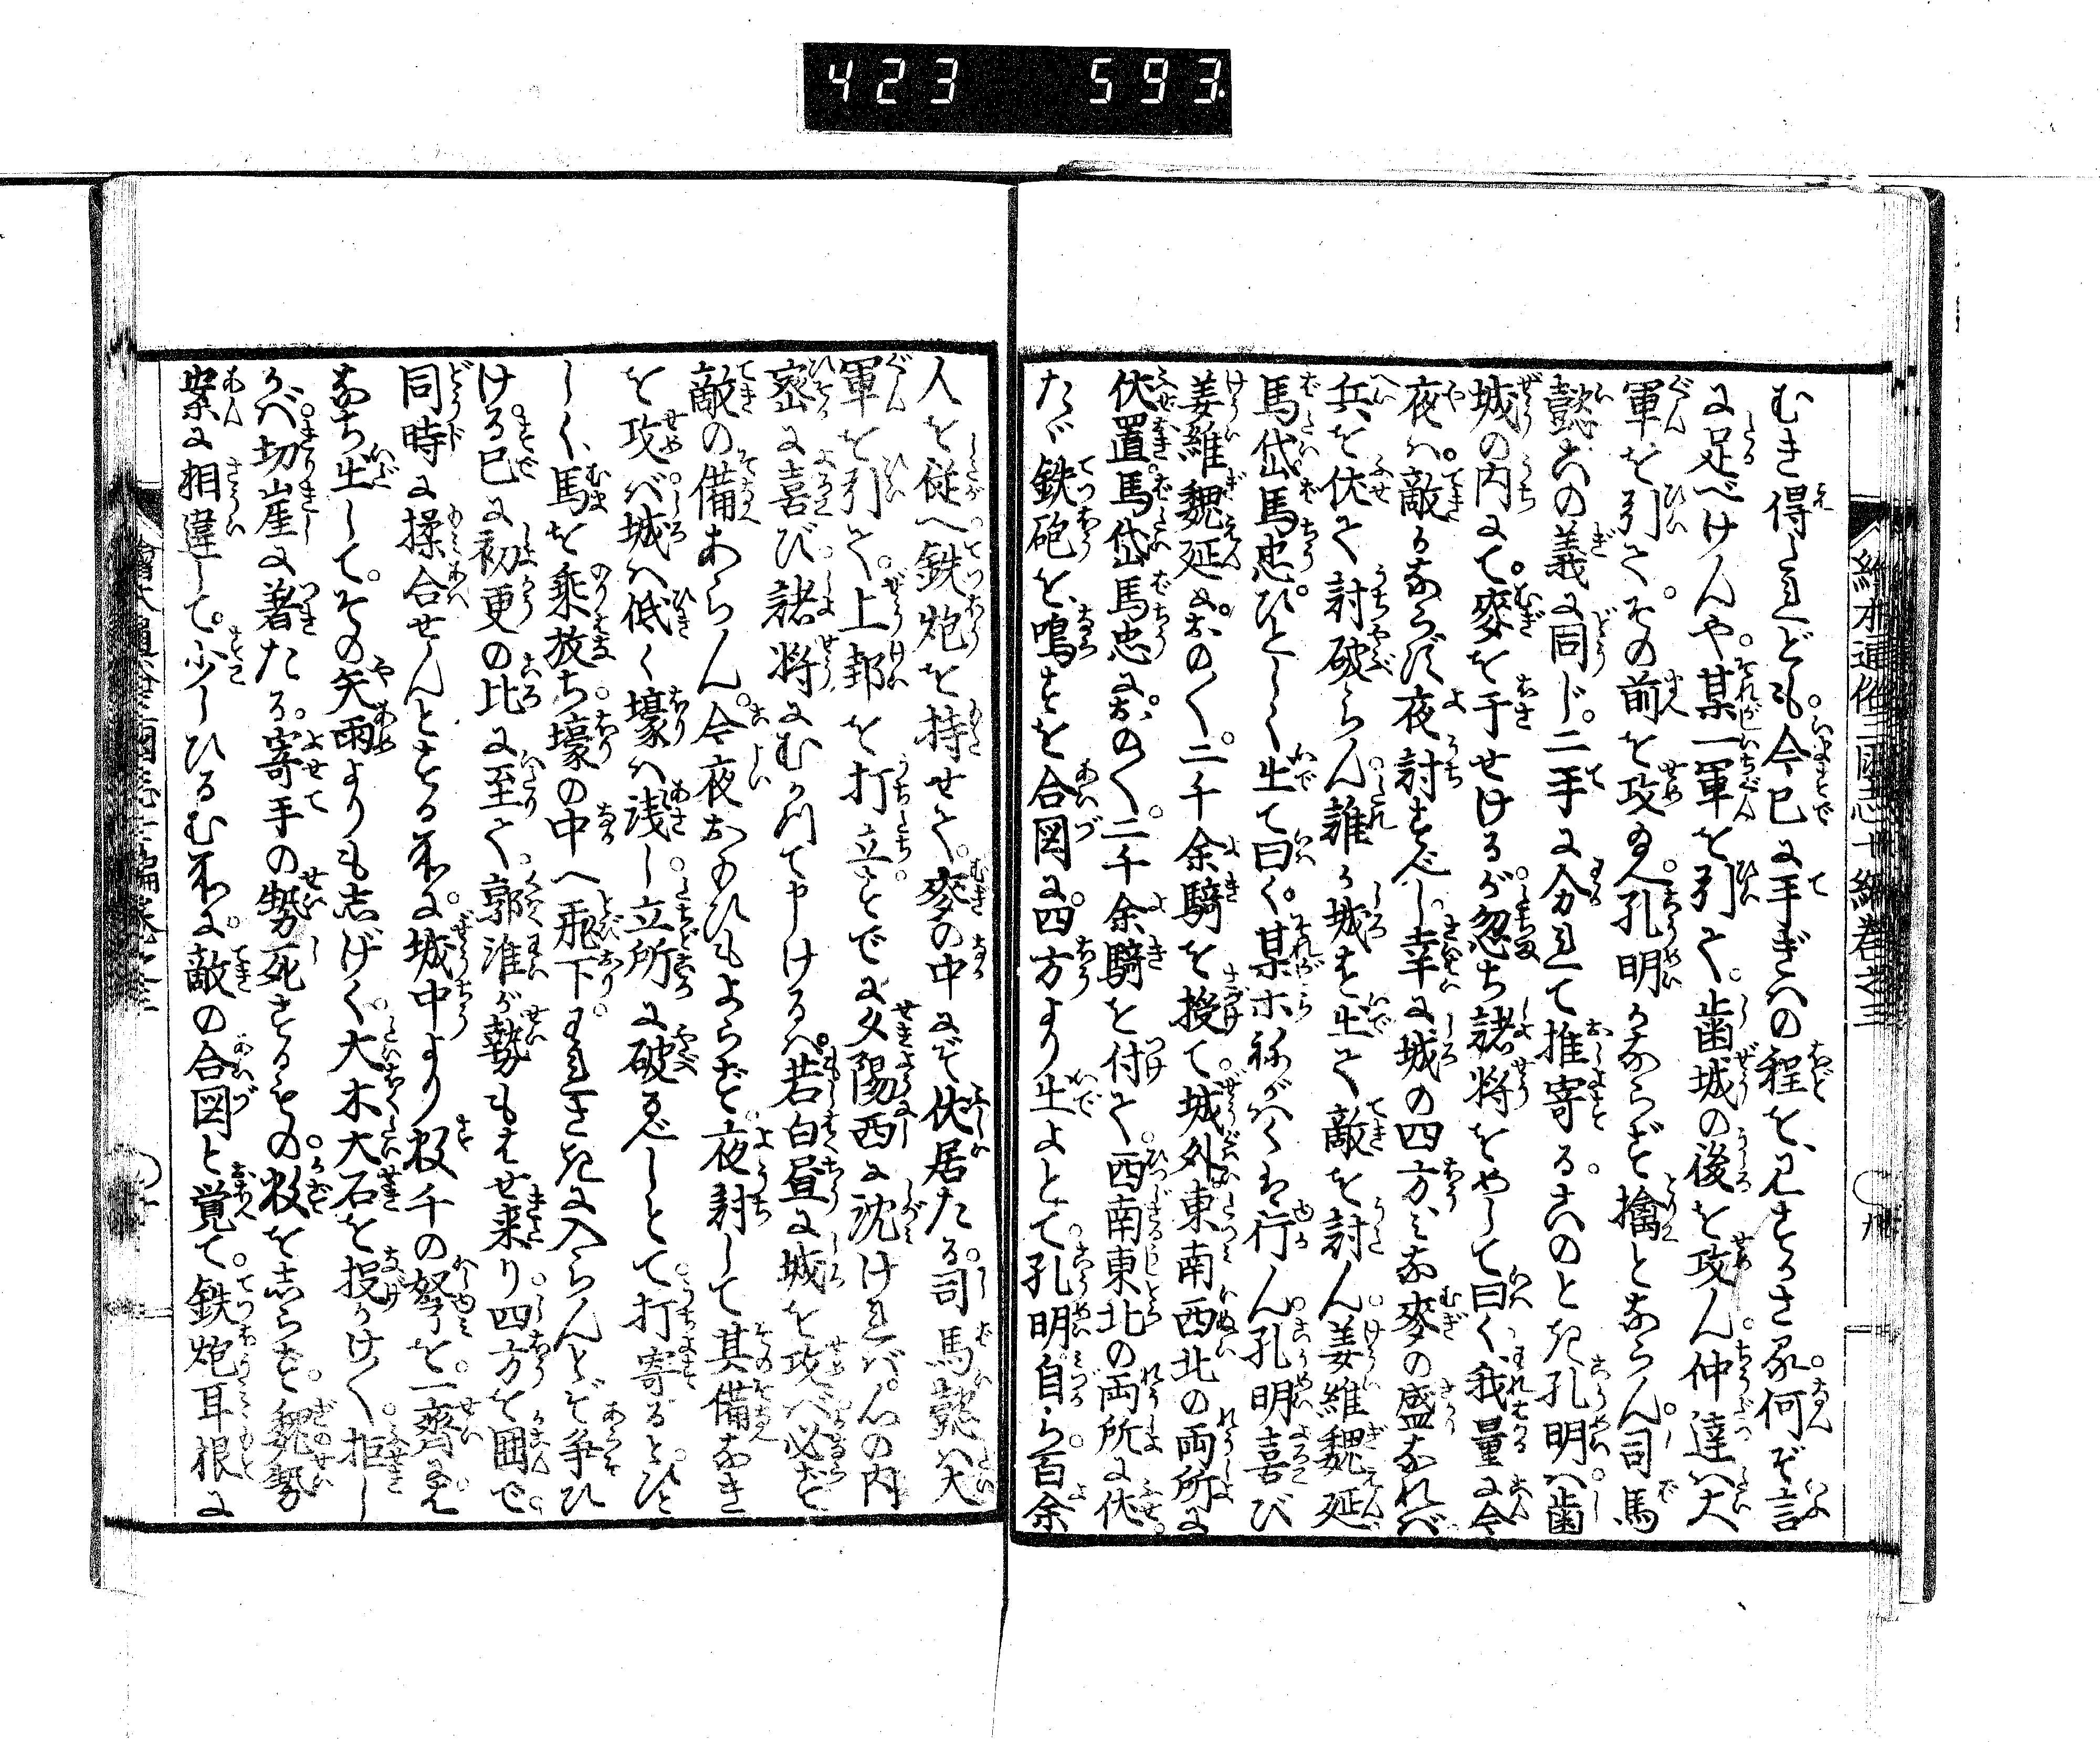 423 593
繪本通俗三國志七編卷之三
むき得しれども。今已に手ぎハの程を、見せらる。何ぞ言
に足べけんや。某一軍を引て。歯城の後を攻ん。仲達ハ大
軍を引て。その前を攻玉へ。孔明かならず擒とならん。司馬
懿この義に同じ。二手に分れて推寄る。このとき孔明ハ歯
城の内にて。麥を干せけるが。忽ち諸将をめして曰く、我量に今
夜ハ。敵かならず夜討すべし。幸に城の四方、ミな麥の盛なれバ
兵を伏て討破らん。誰か城を出て敵を討ん。姜維魏延
馬岱馬忠。ひとしく出て曰く。某ホねがハくハ行ん。孔明喜び
姜維魏延に。おのく二千余騎を授て。城外東南西北の両所に
伏置。馬岱馬忠に。おのく。二千余騎を付て。西南東北の両所に伏。
たゞ鉄砲を、鳴すを合図に。四方より出よとて。孔明自ら。百余
人を従へ。鉄炮を持せて。麥の中にぞ伏居たる。司馬懿ハ大
軍を引て。上邽を打立。すでに夕陽西に沈けれバ。心の内
密に喜び。諸将にむかつて申けるハ。若白昼に城を攻バ必ず
敵の備あらん。今夜おもひもよらず。夜討して其備なき
を攻べ。城ハ低く壕ハ浅し。立所に破るべしとて打寄ると。ひと
しく、馬を乗放ち。壕の中へ飛下。われさきに入らんとぞ争ひ
ける。已に初更の比に至て。郭淮が勢もはせ来り。四方を囲で。
同時に揉合せんとする所に。城中より数千の弩を。一齊に
なち出して。その矢雨よりも志げく。大木大石を投かけく。拒し
かバ。切崖に着たる。寄手の勢死するもの。数を志らず。魏勢
案に相違して。少しひるむ所に。敵の合図と覚て。鉄炮耳根に